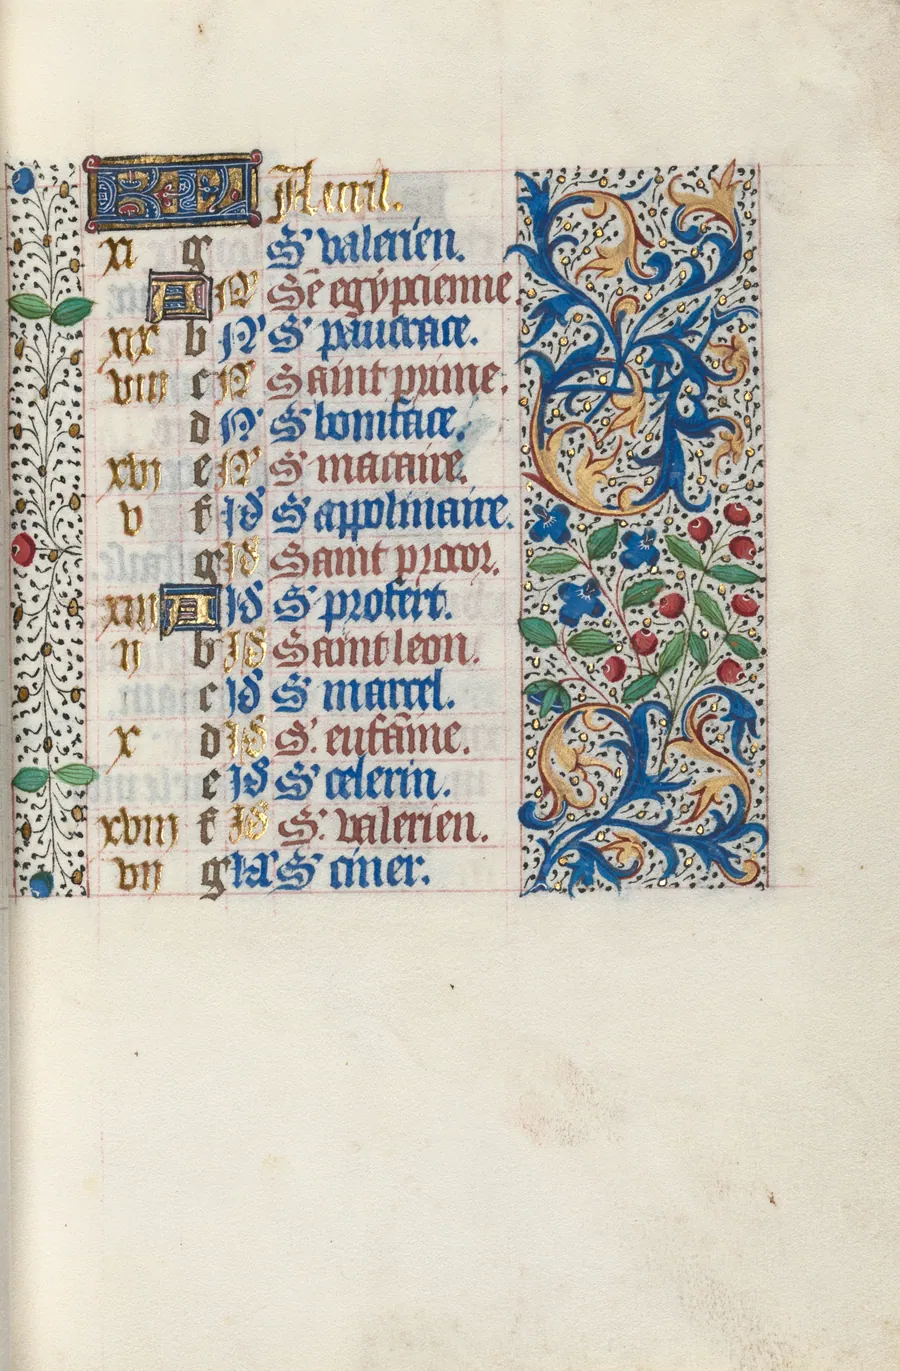 KL Auril.
xi g S' valerien.
A N' Sē egypcienne.
xix b N' S' pancrace.
viii c N' Saint prime.
d N' S' boniface.
xvi e N' S' macaire.
v f id' S' appolinaire.
g id' Saint procor.
xiii A id' S' profert.
ii b id' Saint leon.
c id' S' marcel.
x d id' S. eufāme.
e id' S' celerin.
xviii f id' S. valerien.
vii g S' ciner.